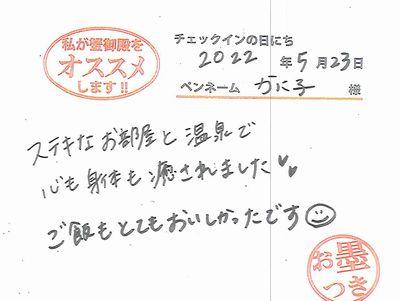 私が蟹御殿を
オススメ
します!!
チェックインの日にち
2022年5月23日
ペンネーム かに子 様
ステキなお部屋と温泉で
心も身体も癒されました♡♡
ご飯もとてもおいしかったです☺
お墨
つき